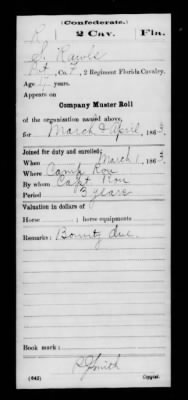 (Confederate.)
R 2 Cav. Fla.
S. Rawls
Pvt, Co. , 2 Regiment Florida Cavalry.
Age years.
Appears on
Company Muster Roll
of the organization named above,
for March & April, 1863.
Joined for duty and enlisted:
When March 1, 1863.
Where Camp Rou
By whom Capt Rou
Period 3 years
Valuation in dollars of
Horse ; horse equipments
Remarks: Bounty due.
Book mark:
(642) Copyist.